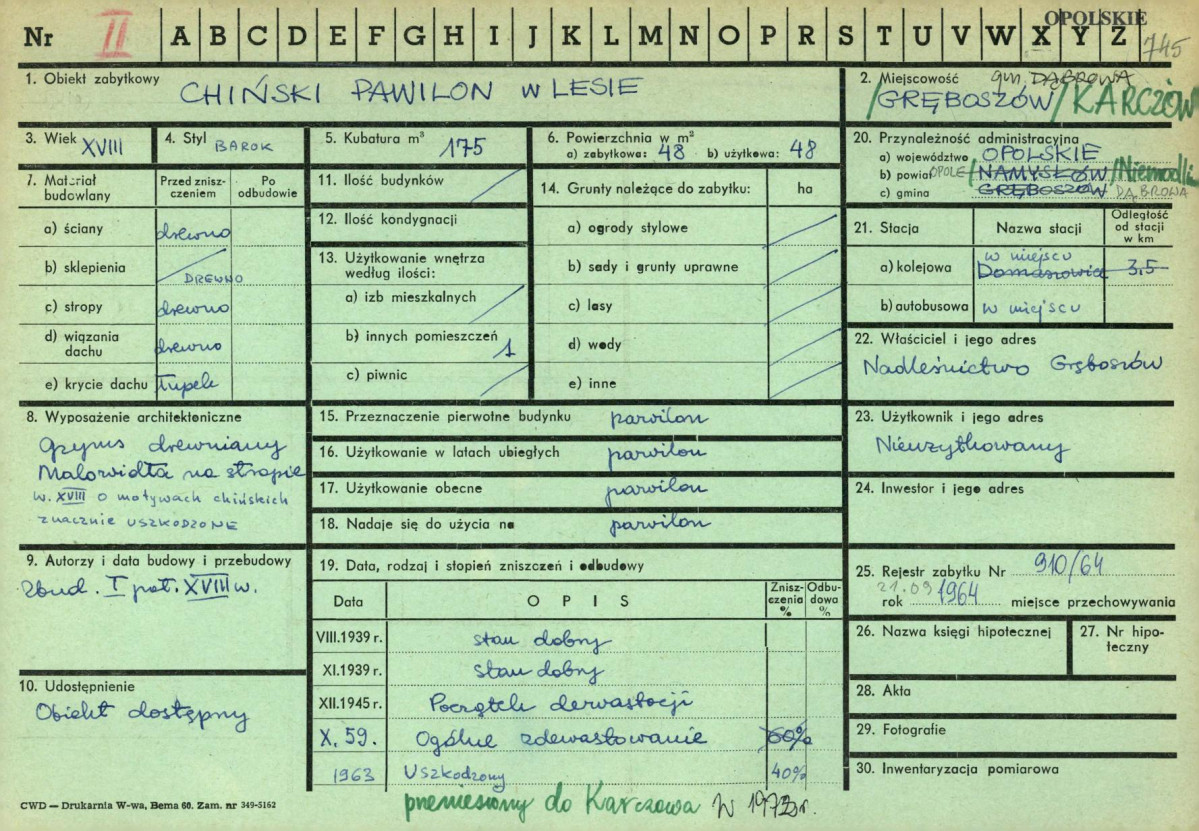 Nr II A B C D E F G H I J K L M N O P R S T U V W X Y Z
OPOLSKIE
745
1. Obiekt zabytkowy
CHIŃSKI PAWILON W LESIE
2. Miejscowość gm. DĄBROWA
/GRĘBOSZÓW/ KARCZÓW
3. Wiek XVIII
4. Styl BAROK
5. Kubatura m³ 175
6. Powierzchnia w m²
a) zabytkowa: 48 b) użytkowa: 48
7. Materiał budowlany
Przed zniszczeniem
Po odbudowie
a) ściany drewno
b) sklepienia
DREWNO
c) stropy drewno
d) wiązania dachu drewno
e) krycie dachu łupek
8. Wyposażenie architektoniczne
Gzyms drewniany
Malowidła na stropie
w. XVIII o motywach chińskich
znacznie USZKODZONE
9. Autorzy i data budowy i przebudowy
Zbud. I poł. XVIII w.
10. Udostępnienie
Obiekt dostępny
11. Ilość budynków
12. Ilość kondygnacji
13. Użytkowanie wnętrza według ilości:
a) izb mieszkalnych
b) innych pomieszczeń 1
c) piwnic
14. Grunty należące do zabytku: ha
a) ogrody stylowe
b) sady i grunty uprawne
c) lasy
d) wody
e) inne
15. Przeznaczenie pierwotne budynku pawilon
16. Użytkowanie w latach ubiegłych pawilon
17. Użytkowanie obecne pawilon
18. Nadaje się do użycia na pawilon
19. Data, rodzaj i stopień zniszczeń i odbudowy
Data O P I S Zniszczenia % Odbudowa %
VIII.1939 r. stan dobry
XI.1939 r. stan dobry
XII.1945 r. Początek dewastacji
X. 59. Ogólne zdewastowanie 60%
1963 Uszkodzony 40%
przeniesiony do Karczowa w 1973 r.
20. Przynależność administracyjna
a) województwo OPOLSKIE
b) powiat OPOLE /NAMYSŁÓW /Niemodlin
c) gmina GRĘBOSZÓW DĄBROWA
21. Stacja Nazwa stacji Odległość od stacji w km
w miejscu
a) kolejowa Domaszowice 3,5
b) autobusowa w miejscu
22. Właściciel i jego adres
Nadleśnictwo Gręboszów
23. Użytkownik i jego adres
Nieużytkowany
24. Inwestor i jego adres
25. Rejestr zabytku Nr 910/64
21.09
rok 1964 miejsce przechowywania
26. Nazwa księgi hipotecznej
27. Nr hipoteczny
28. Akta
29. Fotografie
30. Inwentaryzacja pomiarowa
CWD — Drukarnia W-wa, Bema 60. Zam. nr 349-5162